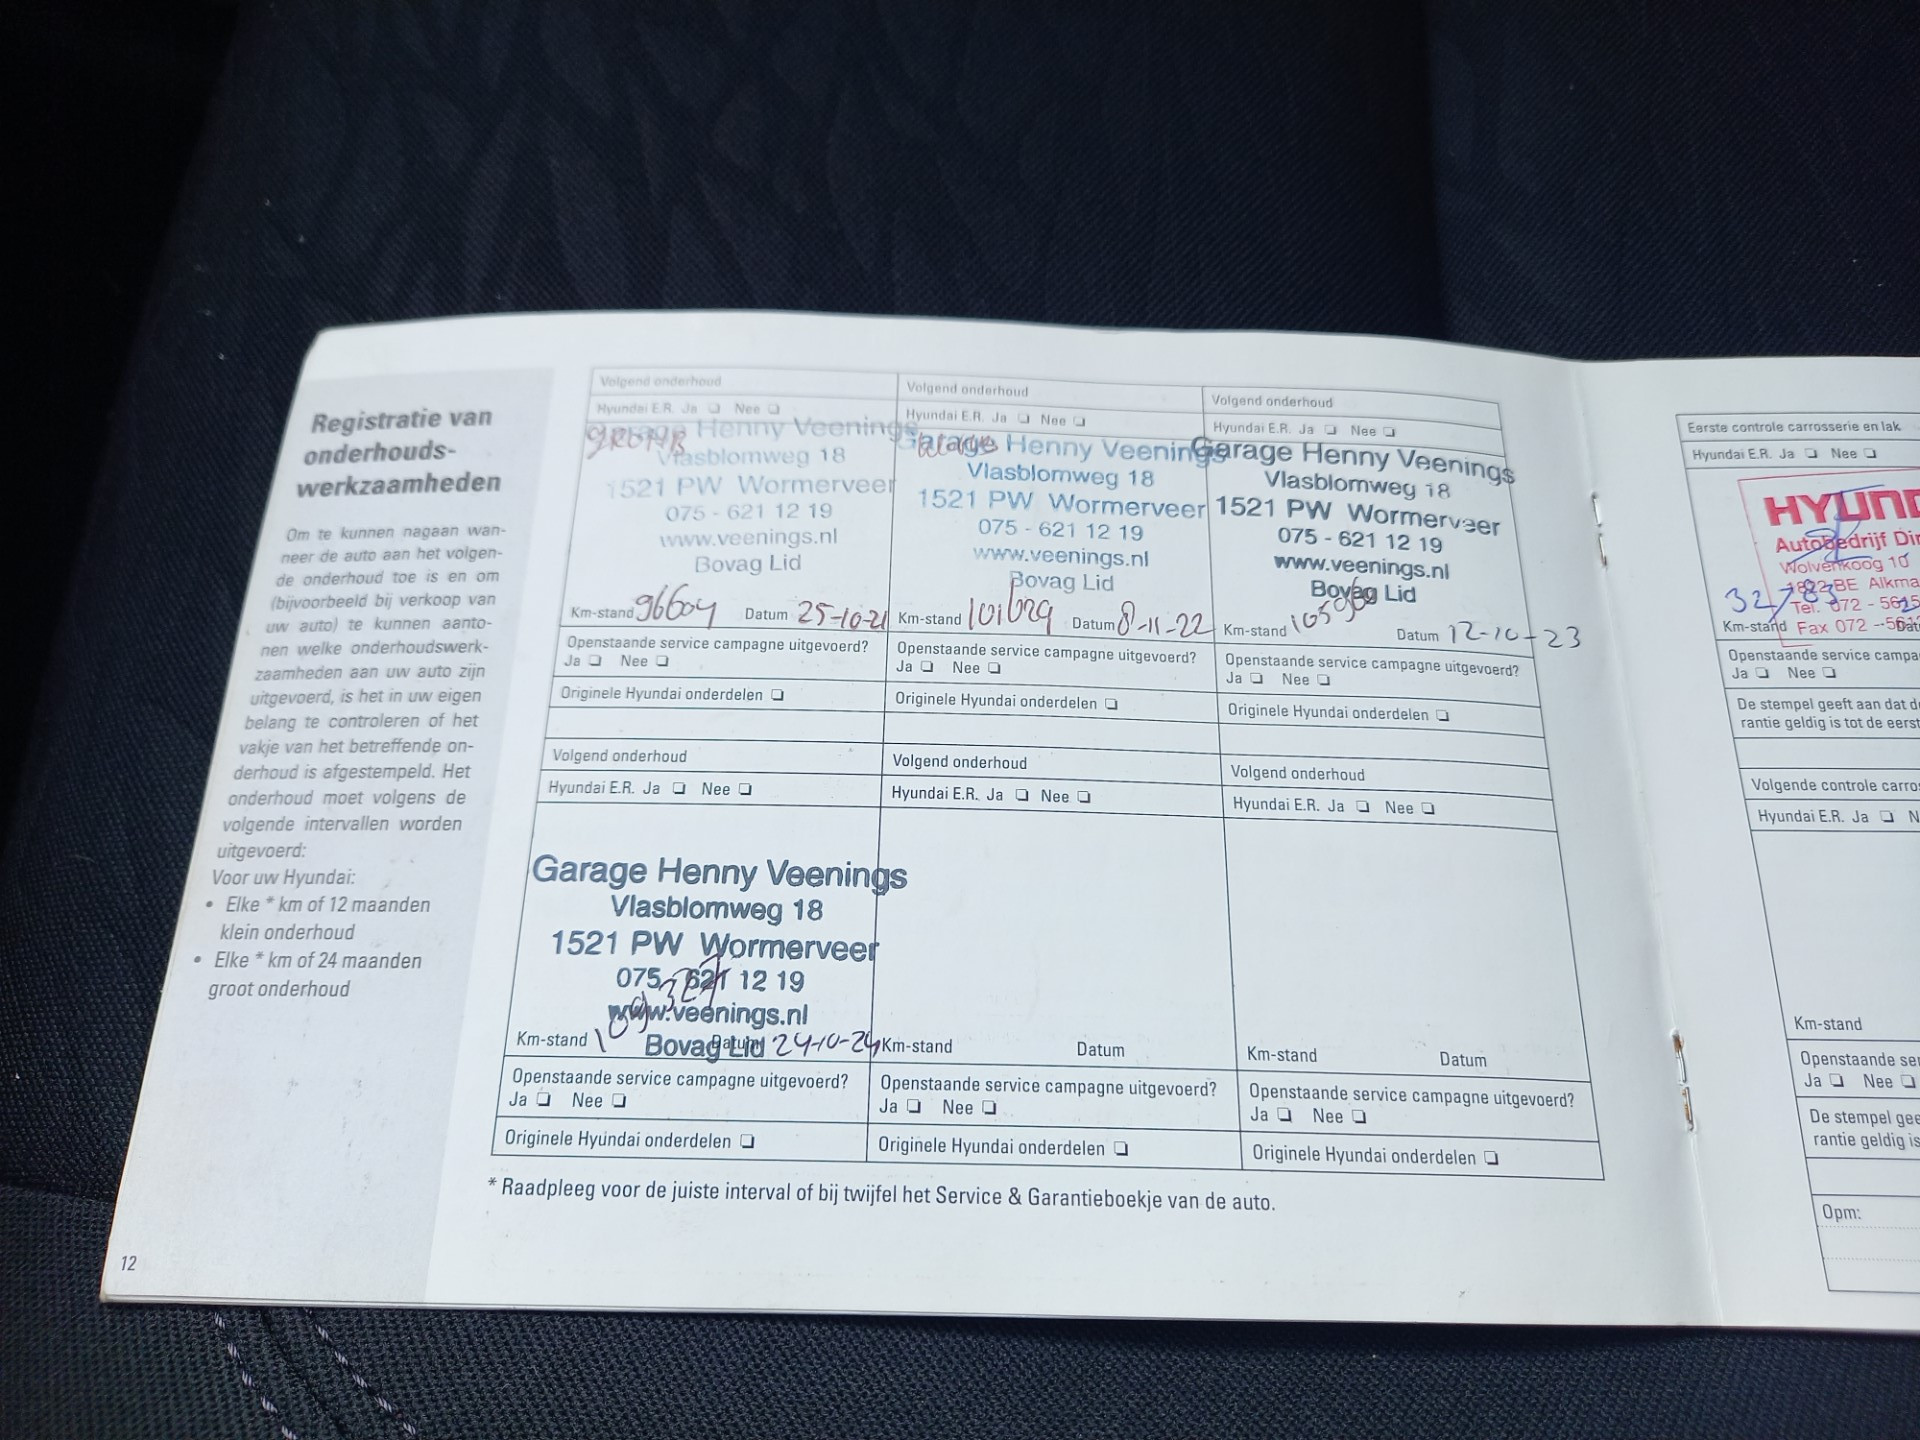 Registratie van
onderhouds-
werkzaamheden
Om te kunnen nagaan wan-
neer de auto aan het volgen-
de onderhoud toe is en om
(bijvoorbeeld bij verkoop van
uw auto) te kunnen aanto-
nen welke onderhoudswerk-
zaamheden aan uw auto zijn
uitgevoerd, is het in uw eigen
belang te controleren of het
vakje van het betreffende on-
derhoud is afgestempeld. Het
onderhoud moet volgens de
volgende intervallen worden
uitgevoerd:
Voor uw Hyundai:
• Elke * km of 12 maanden
klein onderhoud
• Elke * km of 24 maanden
groot onderhoud
12
Volgend onderhoud
Hyundai E.R. Ja ❏ Nee ❏
Garage Henny Veenings
Vlasblomweg 18
1521 PW Wormerveer
075 - 621 12 19
www.veenings.nl
Bovag Lid
Km-stand 96604 Datum 25-10-21
Openstaande service campagne uitgevoerd?
Ja ❏ Nee ❏
Originele Hyundai onderdelen ❏
Volgend onderhoud
Hyundai E.R. Ja ❏ Nee ❏
Garage Henny Veenings
Vlasblomweg 18
1521 PW Wormerveer
075 - 621 12 19
www.veenings.nl
Bovag Lid
Km-stand 101629 Datum 8-11-22
Openstaande service campagne uitgevoerd?
Ja ❏ Nee ❏
Originele Hyundai onderdelen ❏
Volgend onderhoud
Hyundai E.R. Ja ❏ Nee ❏
Garage Henny Veenings
Vlasblomweg 18
1521 PW Wormerveer
075 - 621 12 19
www.veenings.nl
Bovag Lid
Km-stand Datum 12-10-23
Openstaande service campagne uitgevoerd?
Ja ❏ Nee ❏
Originele Hyundai onderdelen ❏
Volgend onderhoud
Hyundai E.R. Ja ❏ Nee ❏
Garage Henny Veenings
Vlasblomweg 18
1521 PW Wormerveer
075 - 621 12 19
www.veenings.nl
Bovag Lid
Km-stand 109327 Datum 24-10-24
Openstaande service campagne uitgevoerd?
Ja ❏ Nee ❏
Originele Hyundai onderdelen ❏
Volgend onderhoud
Hyundai E.R. Ja ❏ Nee ❏
Km-stand Datum
Openstaande service campagne uitgevoerd?
Ja ❏ Nee ❏
Originele Hyundai onderdelen ❏
Volgend onderhoud
Hyundai E.R. Ja ❏ Nee ❏
Km-stand Datum
Openstaande service campagne uitgevoerd?
Ja ❏ Nee ❏
Originele Hyundai onderdelen ❏
* Raadpleeg voor de juiste interval of bij twijfel het Service & Garantieboekje van de auto.
Eerste controle carrosserie en lak
Hyundai E.R. Ja ❏ Nee ❏
HYUND
Autobedrijf Dir
Wolvenkoog 10
1822 BE Alkma
Tel. 072 - 5615
Fax 072 - 561
32783
Km-stand Dat
Openstaande service campa
Ja ❏ Nee ❏
De stempel geeft aan dat d
rantie geldig is tot de eerst
Volgende controle carros
Hyundai E.R. Ja ❏ N
Km-stand
Openstaande ser
Ja ❏ Nee ❏
De stempel gee
rantie geldig is
Opm: